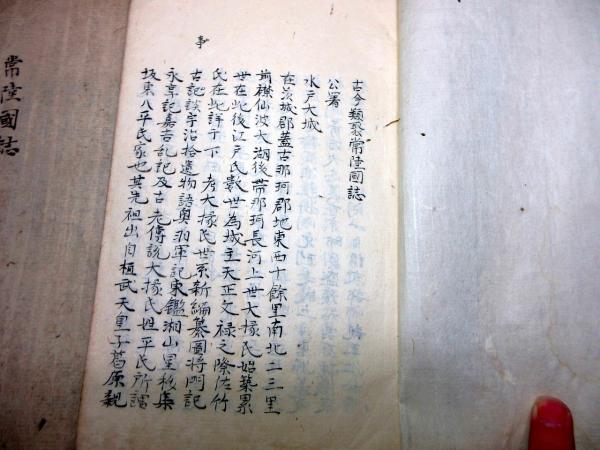 古今類聚常陸國誌
公署
水戸大城
在茨城郡蓋古那珂郡地東西十餘里南北二三里
前襟仙波大湖後帶那珂長河上世大掾氏始築累
世在此後江戸氏數世為城主天正文禄之際佐竹
氏在此詳于下 考大掾氏世系新編纂圖將門記
古記談宇治拾遺物語奥羽軍記東鑑湘山星移集
永享記嘉吉乱記及古老傳説大掾氏姓平氏所謂
坂東八平氏家也其先祖出自桓武天皇子葛原親
事
常陸國誌